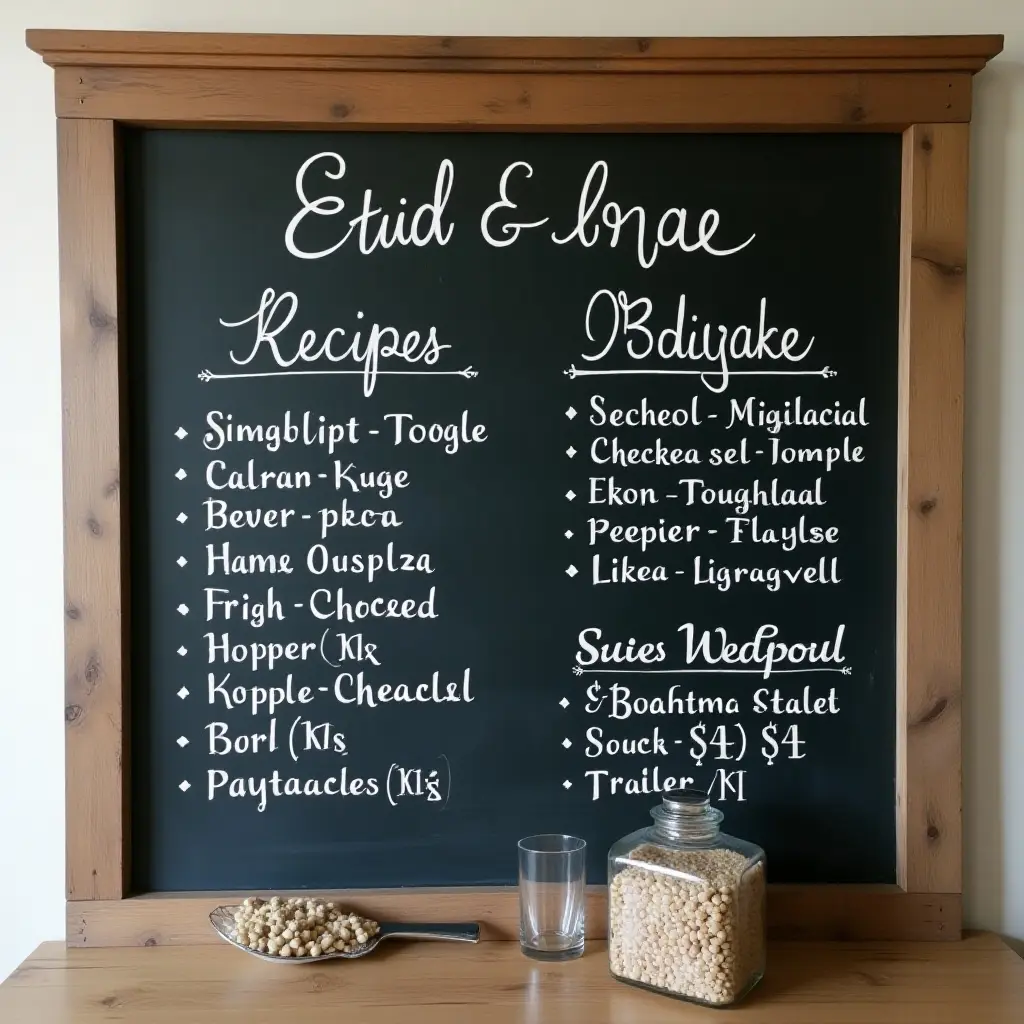 Etuid & lnae
Recipes
Simgblipt - Toogle
Calran - Kuge
Bever - pkca
Hame Ousplza
Frigh - Choceed
Hopper (
Kopple - Cheaclel
Borl (KIs
Paytaacles (KIs)
Bdiyake
Secheol - Migilacial
Checkea sel - Jomple
Ekon - Toughlaal
Peepier - Flaylse
Likea - Ligragvell
Suies Wedpoul
& Boahtma Stalet
Souck - $4) $4
Trailer /KI